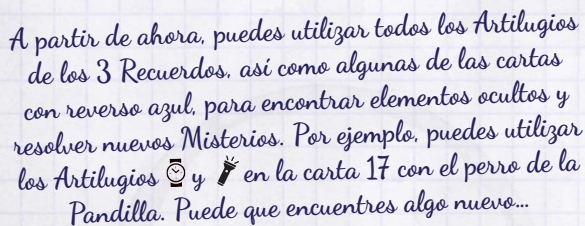 A partir de ahora, puedes utilizar todos los Artilugios
de los 3 Recuerdos, así como algunas de las cartas
con reverso azul, para encontrar elementos ocultos y
resolver nuevos Misterios. Por ejemplo, puedes utilizar
los Artilugios y en la carta 17 con el perro de la
Pandilla. Puede que encuentres algo nuevo...